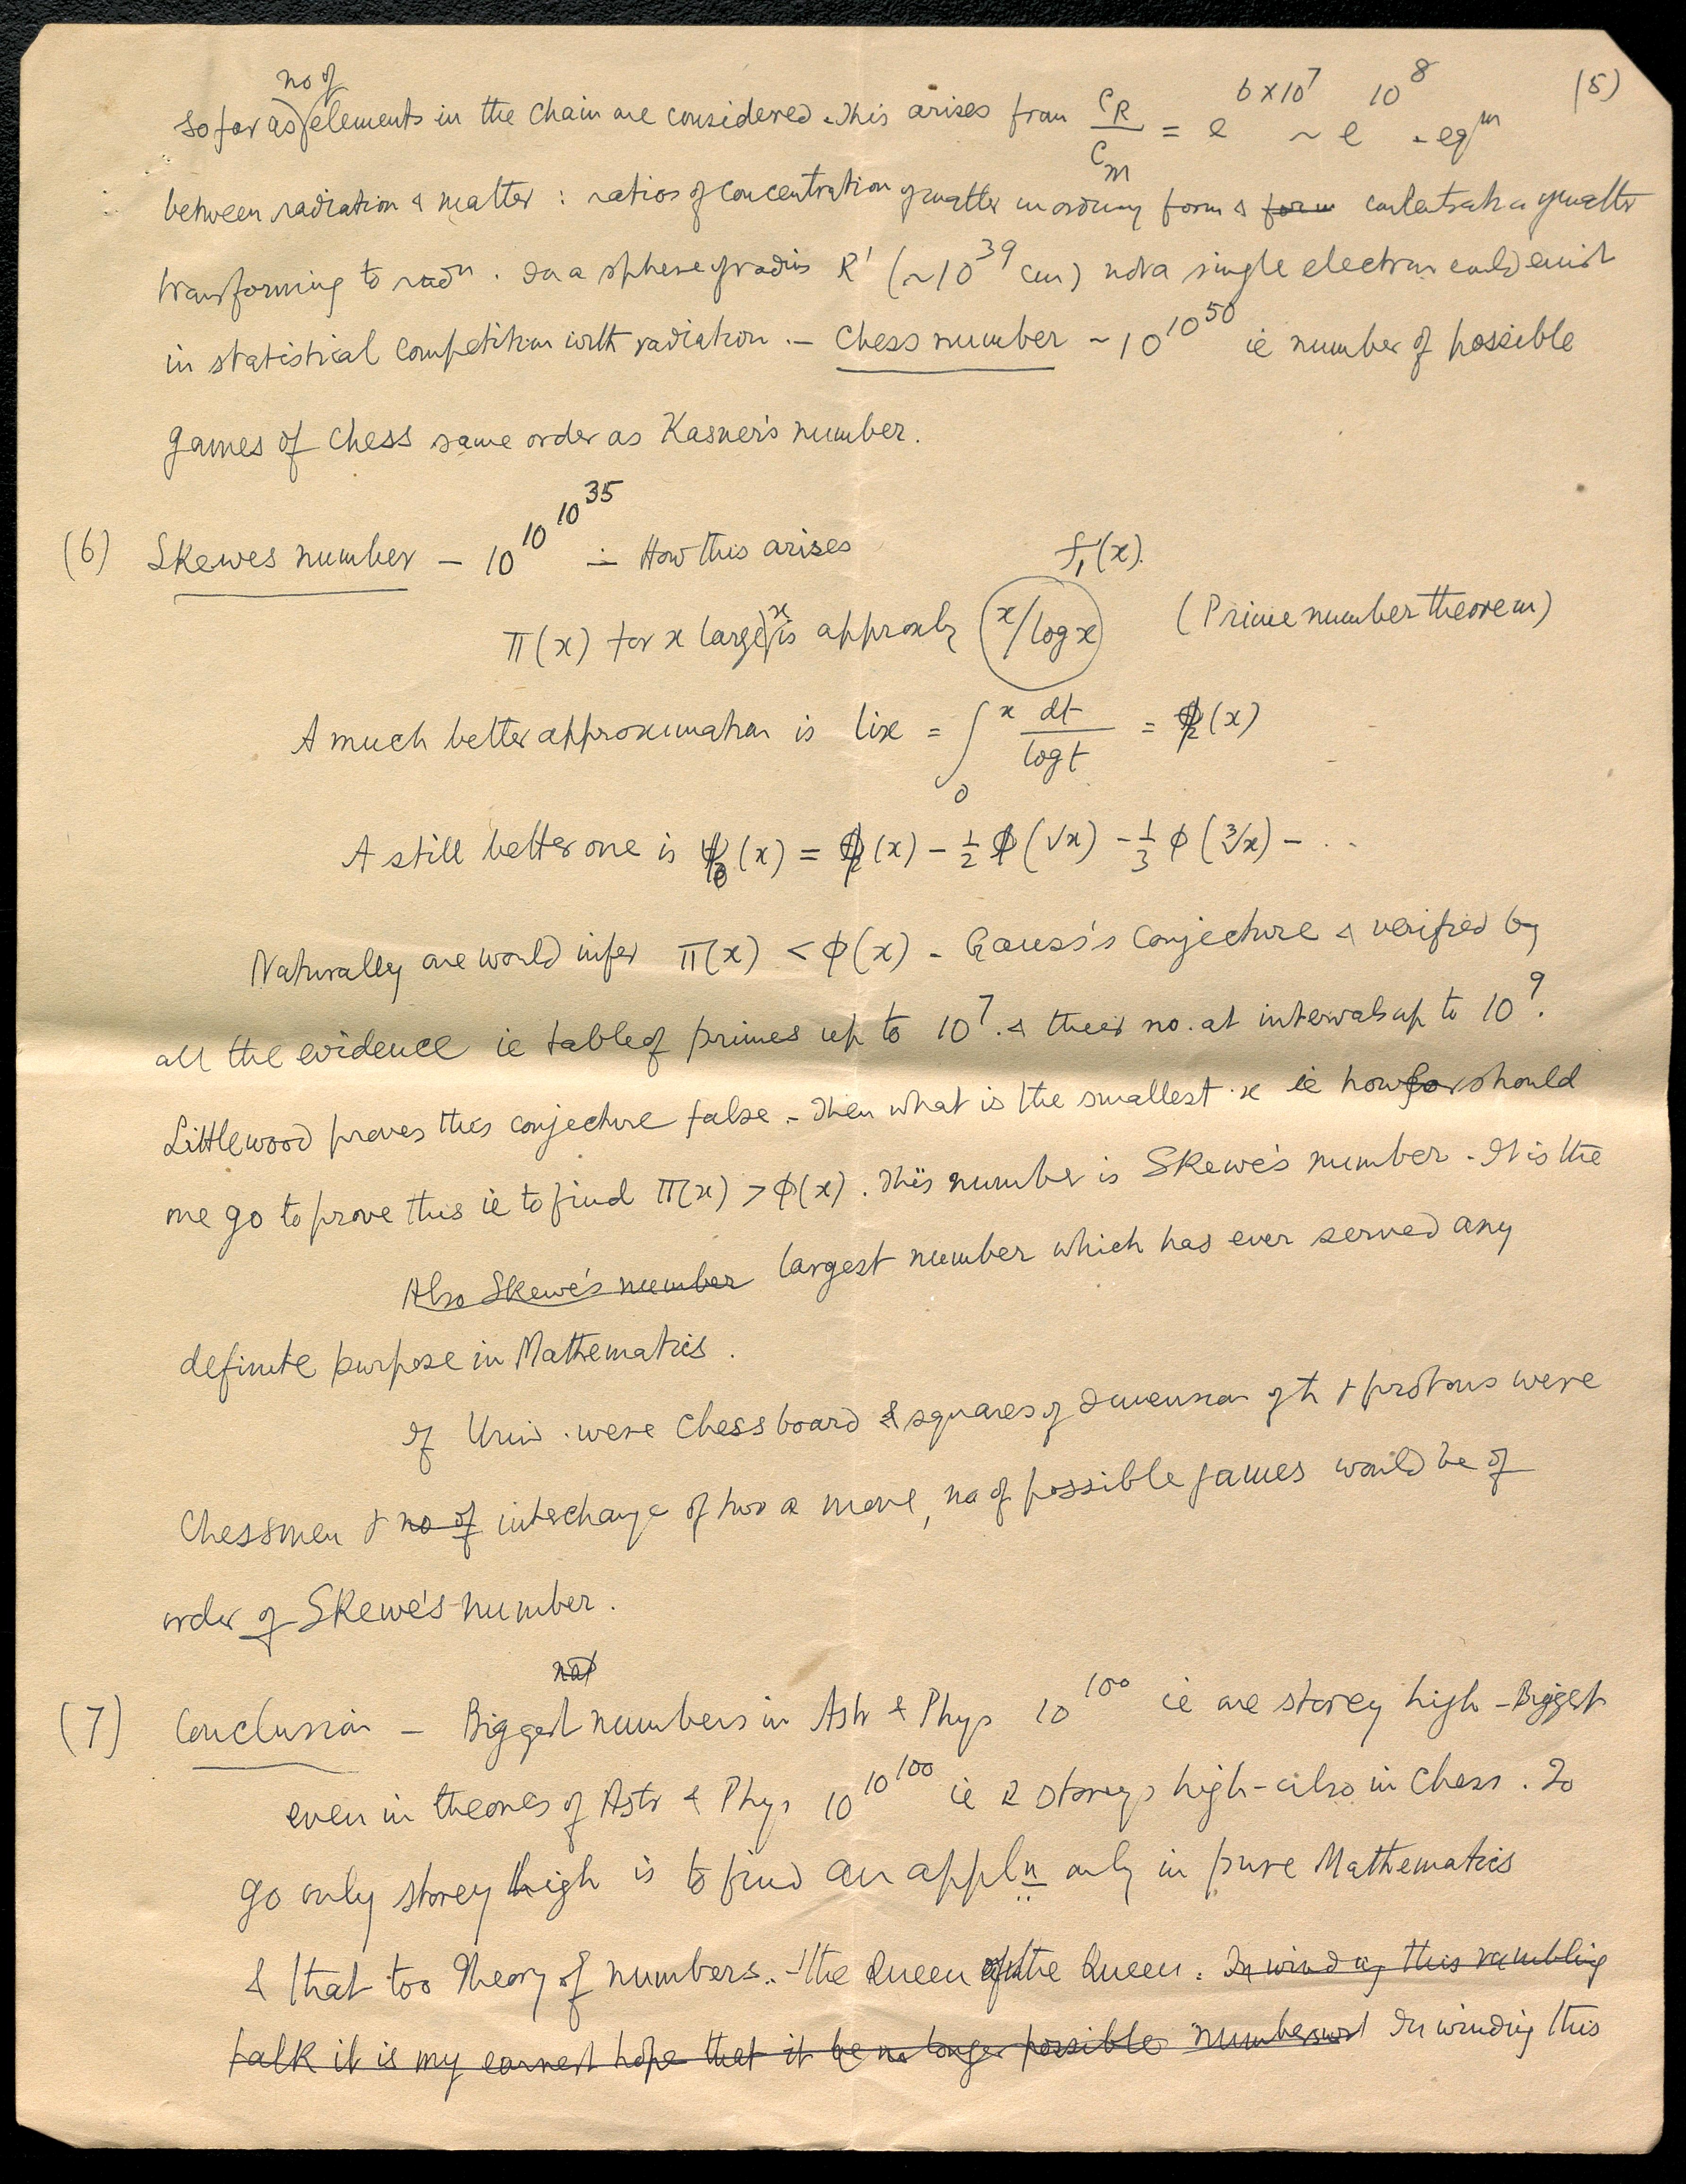 (5)
no of
so far as elements in the chain are considered. This arises from C_R/C_m = e^{6×10^7} ~ e^{10^8} . eq^m
between radiation & matter : ratios of concentration of matter in ordinary form & form concentration of matter
transforming to rad^n. In a sphere of radius R' (~10^{39} cm) not a single electron could exist
in statistical competition with radiation. – Chess number ~10^{10^{50}} ie number of possible
games of chess same order as Kasner's number.
(6) Skewes number – 10^{10^{10^{35}}} – How this arises
f_1(x).
π(x) for x large is approxly x/log x (Prime number theorem)
A much better approximation is li x = ∫_0^x dt/log t = ϕ(x)
A still better one is ψ(x) = ϕ(x) – 1/2 ϕ(√x) – 1/3 ϕ(∛x) – ...
Naturally one would infer π(x) < ϕ(x) – Gauss's conjecture & verified by
all the evidence ie table of primes up to 10^7. & their no. at intervals up to 10^9.
Littlewood proves this conjecture false – Then what is the smallest x ie how far should
one go to prove this ie to find π(x) > ϕ(x). This number is Skewe's number. It is the
Also Skewe's number largest number which has ever served any
definite purpose in Mathematics.
If Univ. were chess board & squares of dimension of h & protons were
Chessmen & no of interchange of two a move, no of possible games would be of
order of Skewe's number.
not
(7) Conclusion – Biggest numbers in Astr & Phys 10^{100} ie one storey high – Biggest
even in theories of Astr & Phys 10^{10^{100}} ie 2 storeys high – also in Chess. To
go only storey high is to find an appl^n only in pure Mathematics
& that too Theory of numbers.. – the Queen of the Queen. In winding this rambling
talk it is my earnest hope that it be no longer possible In winding this